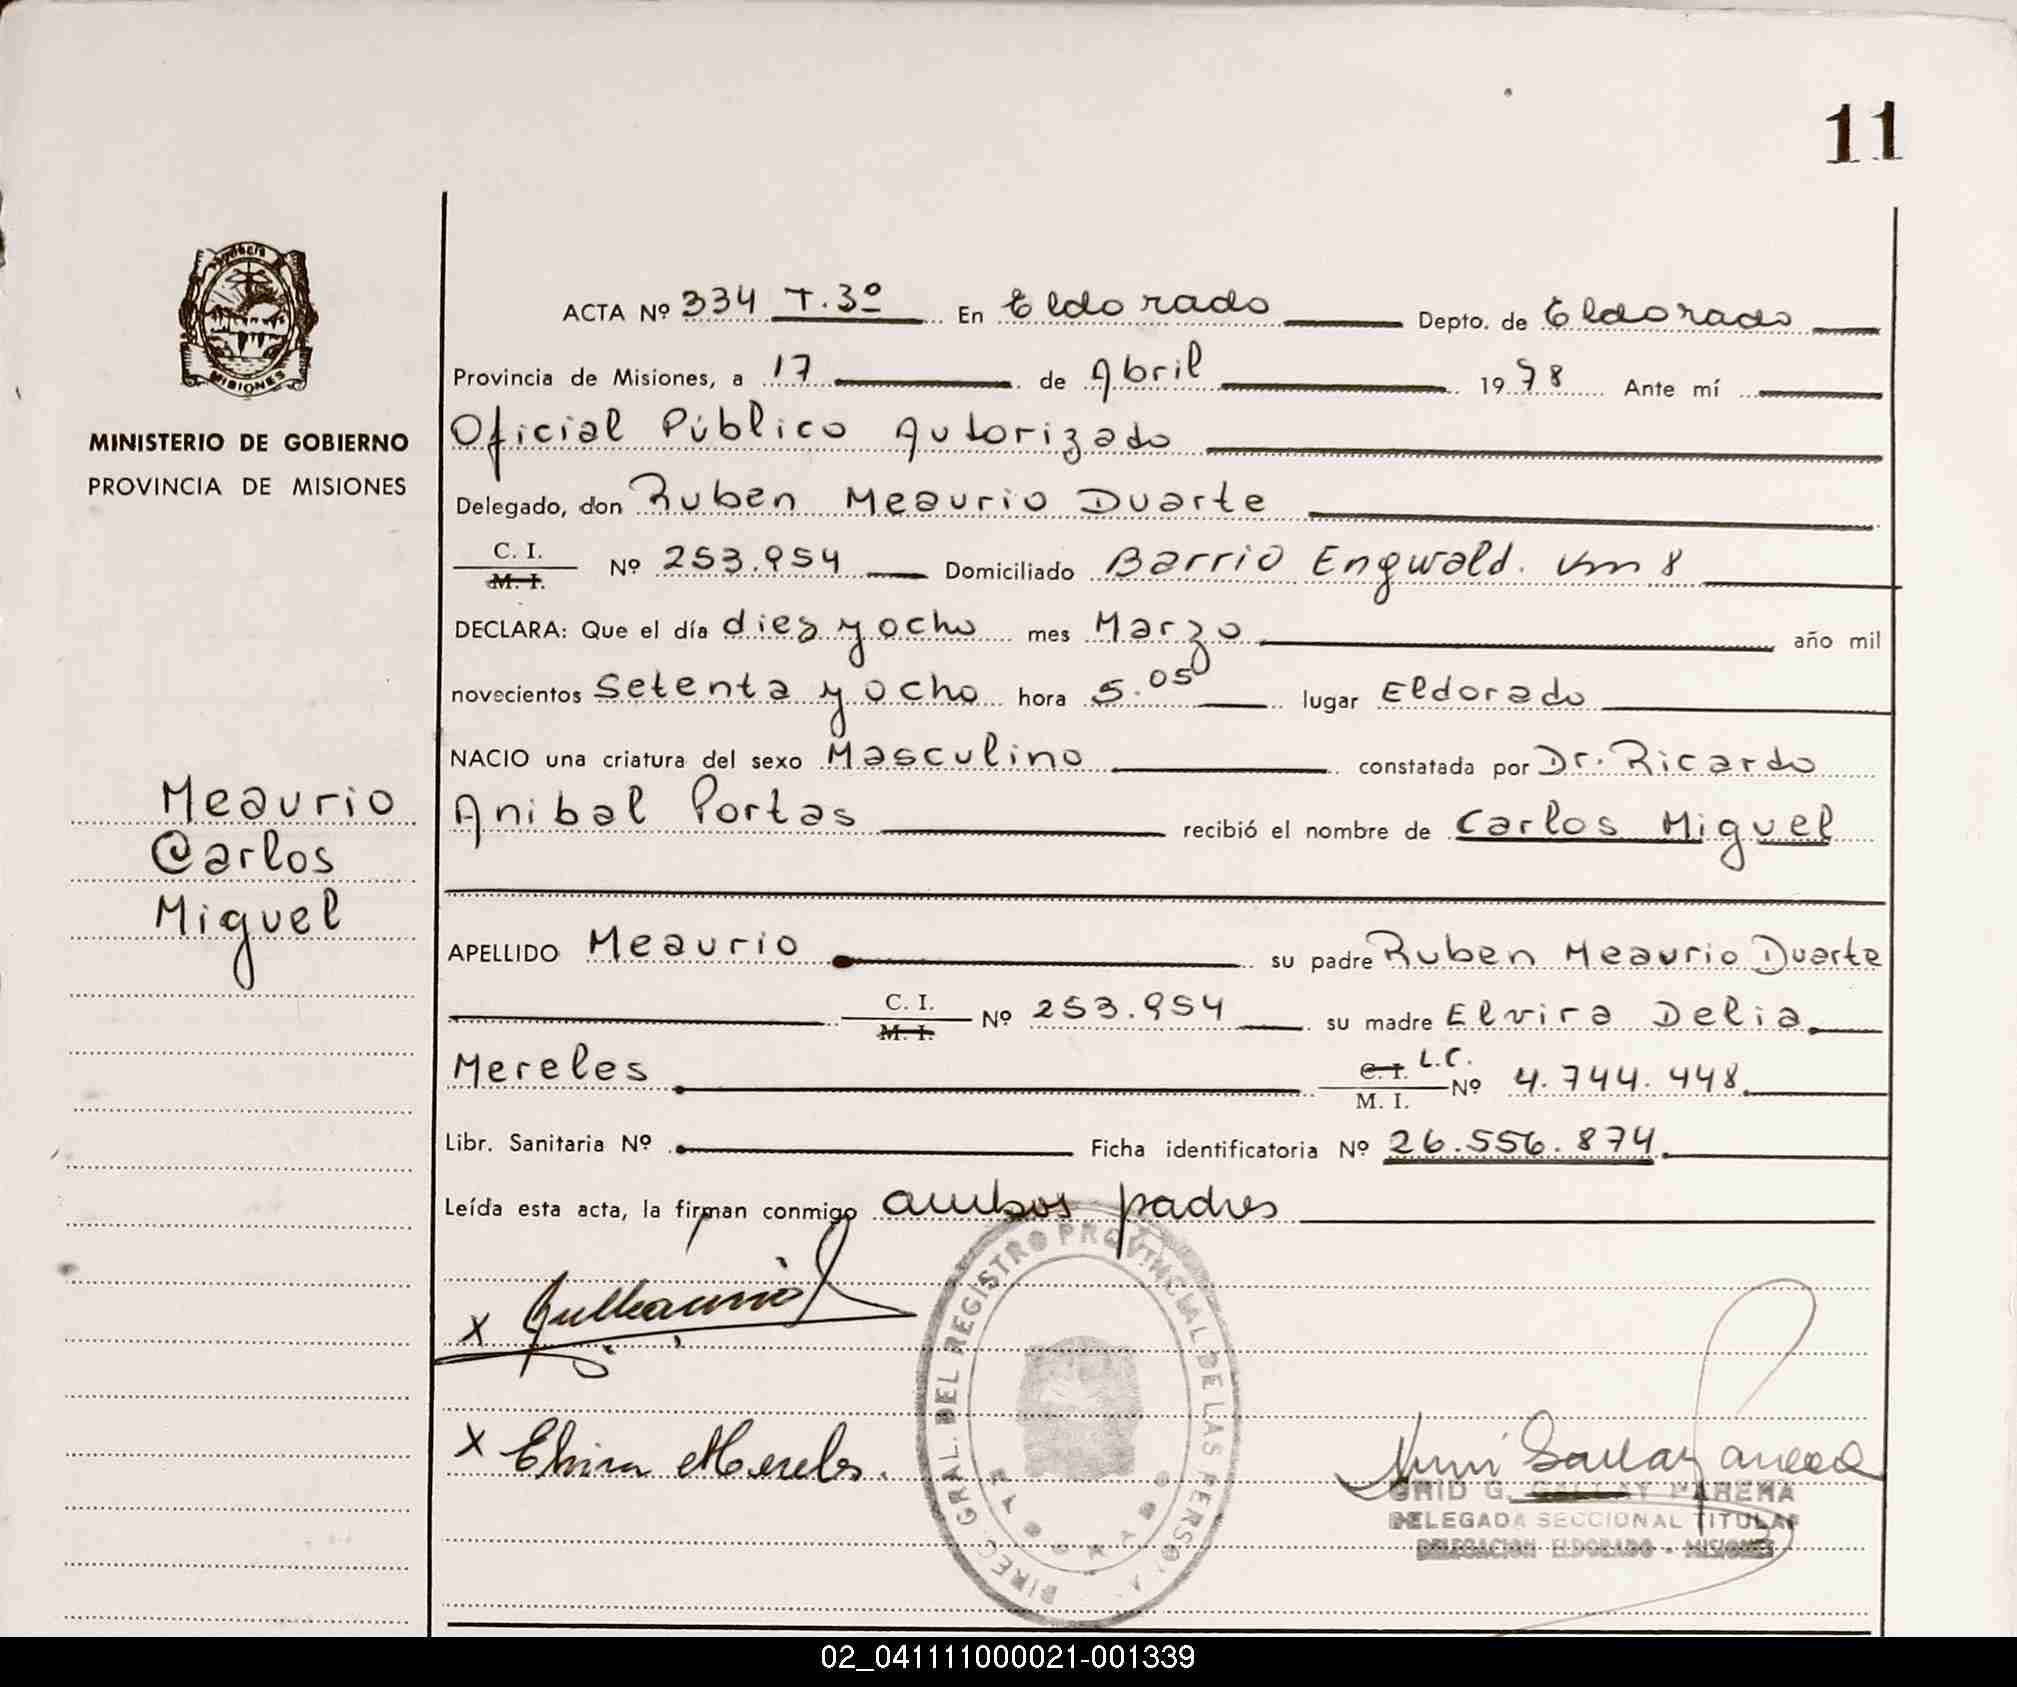 11
ACTA Nº 334 T. 3º En Eldorado Depto. de Eldorado
Provincia de Misiones, a 17 de Abril 1978 Ante mí
MINISTERIO DE GOBIERNO
PROVINCIA DE MISIONES
Oficial Público Autorizado
Delegado, don Ruben Meaurio Duarte
C. I.
M. I.
Nº 253.954 Domiciliado Barrio Engwald. Km 8
DECLARA: Que el día dies y ocho mes Marzo año mil
novecientos Setenta y ocho hora 5.05 lugar Eldorado
NACIO una criatura del sexo Masculino constatada por Dr. Ricardo
Anibal Portas recibió el nombre de Carlos Miguel
Meaurio
Carlos
Miguel
APELLIDO Meaurio su padre Ruben Meaurio Duarte
C. I.
M. I.
Nº 253.954 su madre Elvira Delia
Mereles C. I. L.C.
M. I.
Nº 4.744.448
Libr. Sanitaria Nº Ficha identificatoria Nº 26.556.874
Leída esta acta, la firman conmigo ambos padres
x
x Elvira Mereles.
DIREC. GRAL. DEL REGISTRO PROVINCIAL DE LAS PERSO
G. GALLAY
DELEGADA SECCIONAL TITULAR
DELEGACION ELDORADO - MISIONES
MISIONES
02_041111000021-001339